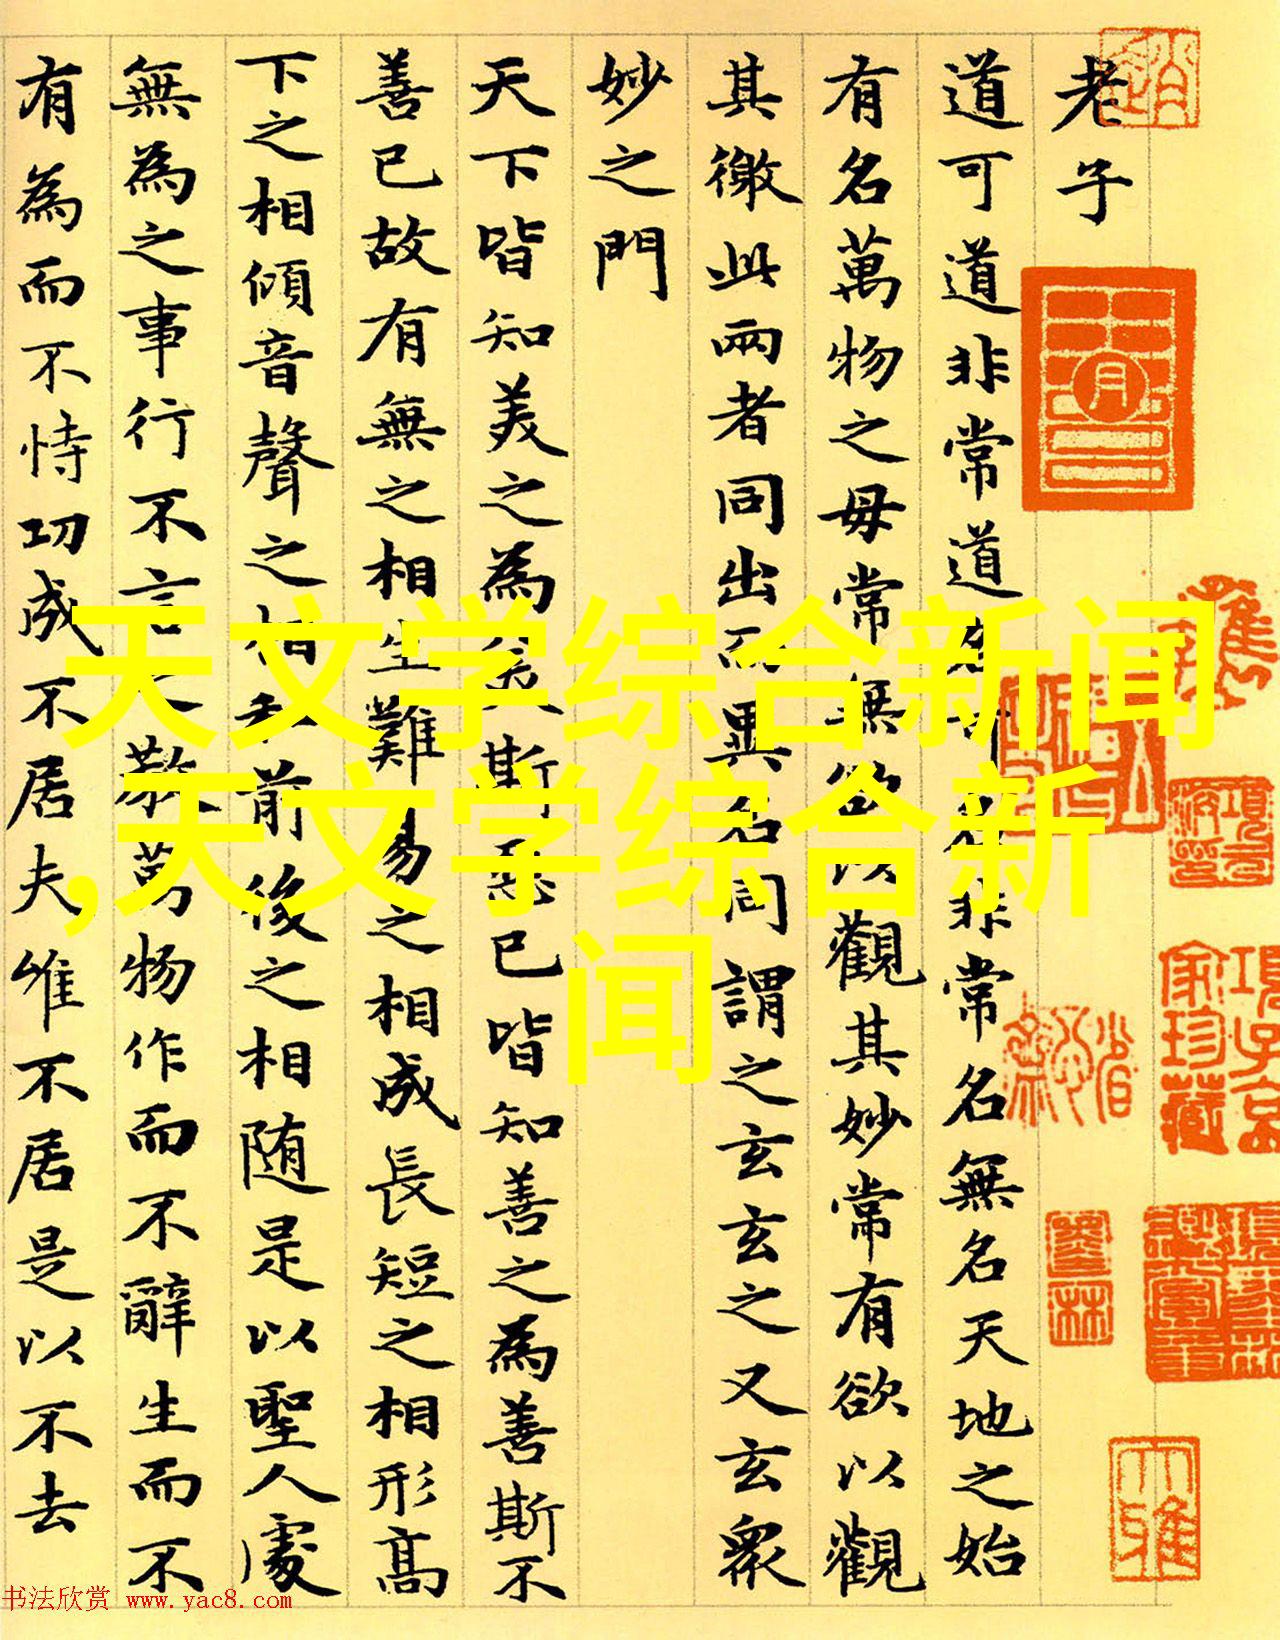 老子
道可道非常道名可名非常名無名天地之始
有名萬物之母常無欲以觀其妙常有欲以觀
其徼此兩者同出而異名同謂之玄玄之又玄衆
妙之門
天下皆知美之為美斯惡已皆知善之為善斯不
善已故有無之相生難易之相成長短之相形高
下之相傾音聲之相和前後之相随是以聖人處
無為之事行不言之教萬物作而不辭生而不
有為而不恃功成不居夫惟不居是以不去
天文学综合新闻
,天文学综合新
闻
项子京
家珍藏
书法欣赏 www.yac8.com